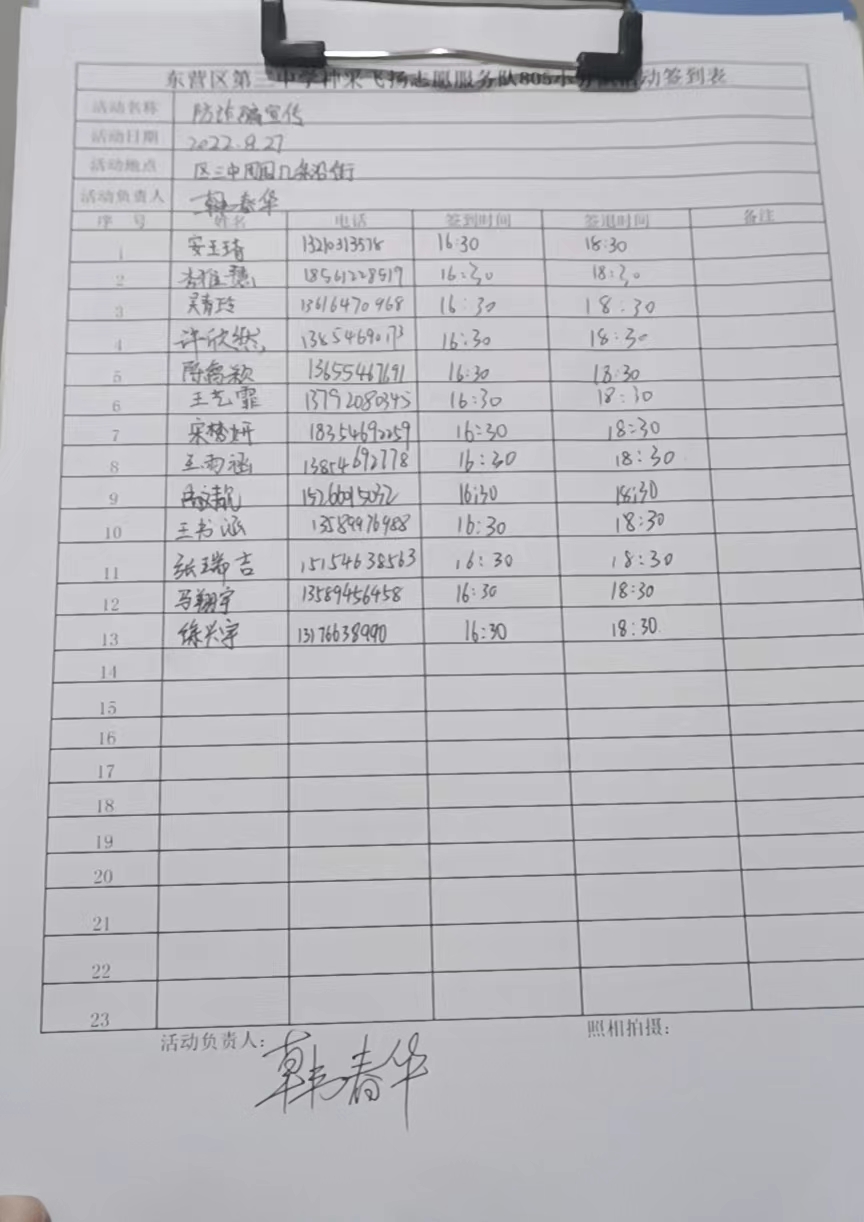 东营区第三中学种梁飞扬志愿服务队805小分队活动签到表
活动名称 防诈骗宣传
活动日期 2022.9.27
活动地点 区三中周围几条沿街
活动负责人 韩春华
序 号 姓名 电话 签到时间 签退时间 备注
1 安玉琦 13210313578 16:30 18:30
2 18561228519 16:30 18:30
3 吴青玲 13616470968 16:30 18:30
4 许欣然 13854690173 16:30 18:30
5 陈 颖 13655467691 16:30 18:30
6 王艺霏 13792080345 16:30 18:30
7 宋梦妍 18354692259 16:30 18:30
8 王雨涵 13854692778 16:30 18:30
9 16:30 18:30
10 王书涵 13589976988 16:30 18:30
11 张瑞吉 15154638563 16:30 18:30
12 马翔宇 13589456458 16:30 18:30
13 徐兴宇 13176638990 16:30 18:30
14
15
16
17
18
19
20
21
22
23
活动负责人: 韩春华 照相拍摄: